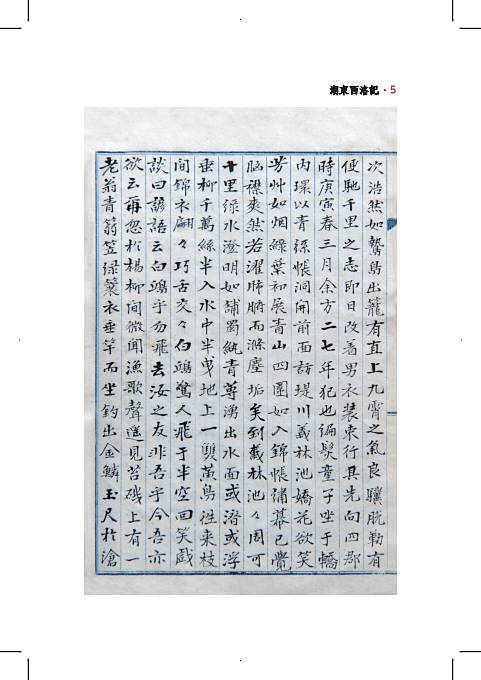 湖東西洛記 · 5
次浩然如鷙鳥出籠有直上九霄之氣良驥脫勒有
便馳千里之志即日改着男衣裝束行具先向四郡
時庚寅春三月余方二七年犯也编髮童子坐于轎
內環以青絲帳洞開前面訪堤川義林池嬌花欲笑
芳艸如烟綠葉初展青山四圍如入錦帳繡幕已覺
胸襟爽然若濯肺腑而滌塵垢矣到義林池々周可
十里綠水澄明如舖蜀紈青蓴湧出水面或潛或浮
垂柳千萬絲半入水中半曳地上一雙黃鳥徃来枝
間錦衣翩々巧舌交々白鷗驚人飛于半空回笑戲
談曰諺語云白鷗乎勿飛去汝之友非吾乎今吾亦
欲云爾忽於楊柳間微聞漁歌聲遥見苔磯上有一
老翁青篛笠绿簑衣垂竿而坐釣出金鱗玉尺於滄